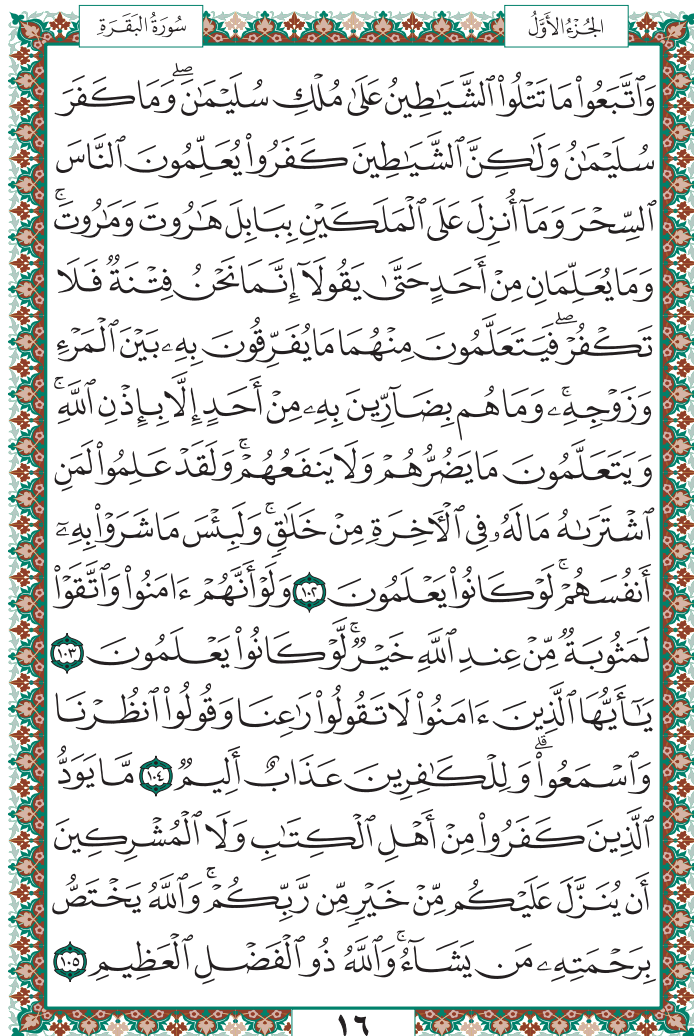 الجُزْءُ الأَوَّلُ
سُورَةُ البَقَرَةِ
وَٱتَّبَعُواْ مَا تَتْلُواْ ٱلشَّيَٰطِينُ عَلَىٰ مُلْكِ سُلَيْمَٰنَۖ وَمَا كَفَرَ
سُلَيْمَٰنُ وَلَٰكِنَّ ٱلشَّيَٰطِينَ كَفَرُواْ يُعَلِّمُونَ ٱلنَّاسَ
ٱلسِّحْرَ وَمَآ أُنزِلَ عَلَى ٱلْمَلَكَيْنِ بِبَابِلَ هَٰرُوتَ وَمَٰرُوتَۚ
وَمَا يُعَلِّمَانِ مِنْ أَحَدٍ حَتَّىٰ يَقُولَآ إِنَّمَا نَحْنُ فِتْنَةٌ فَلَا
تَكْفُرْۖ فَيَتَعَلَّمُونَ مِنْهُمَا مَا يُفَرِّقُونَ بِهِۦ بَيْنَ ٱلْمَرْءِ
وَزَوْجِهِۦۚ وَمَا هُم بِضَآرِّينَ بِهِۦ مِنْ أَحَدٍ إِلَّا بِإِذْنِ ٱللَّهِۚ
وَيَتَعَلَّمُونَ مَا يَضُرُّهُمْ وَلَا يَنفَعُهُمْۚ وَلَقَدْ عَلِمُواْ لَمَنِ
ٱشْتَرَىٰهُ مَا لَهُۥ فِي ٱلْأَخِرَةِ مِنْ خَلَٰقٍۚ وَلَبِئْسَ مَا شَرَوْاْ بِهِۦٓ
أَنفُسَهُمْۚ لَوْ كَانُواْ يَعْلَمُونَ ١٠٢ وَلَوْ أَنَّهُمْ ءَامَنُواْ وَٱتَّقَوْاْ
لَمَثُوبَةٌ مِّنْ عِندِ ٱللَّهِ خَيْرٌۚ لَّوْ كَانُواْ يَعْلَمُونَ ١٠٣
يَٰٓأَيُّهَا ٱلَّذِينَ ءَامَنُواْ لَا تَقُولُواْ رَٰعِنَا وَقُولُواْ ٱنظُرْنَا
وَٱسْمَعُواْۗ وَلِلْكَٰفِرِينَ عَذَابٌ أَلِيمٌ ١٠٤ مَّا يَوَدُّ
ٱلَّذِينَ كَفَرُواْ مِنْ أَهْلِ ٱلْكِتَٰبِ وَلَا ٱلْمُشْرِكِينَ
أَن يُنَزَّلَ عَلَيْكُم مِّنْ خَيْرٍ مِّن رَّبِّكُمْۚ وَٱللَّهُ يَخْتَصُّ
بِرَحْمَتِهِۦ مَن يَشَآءُۚ وَٱللَّهُ ذُو ٱلْفَضْلِ ٱلْعَظِيمِ ١٠٥
١٦